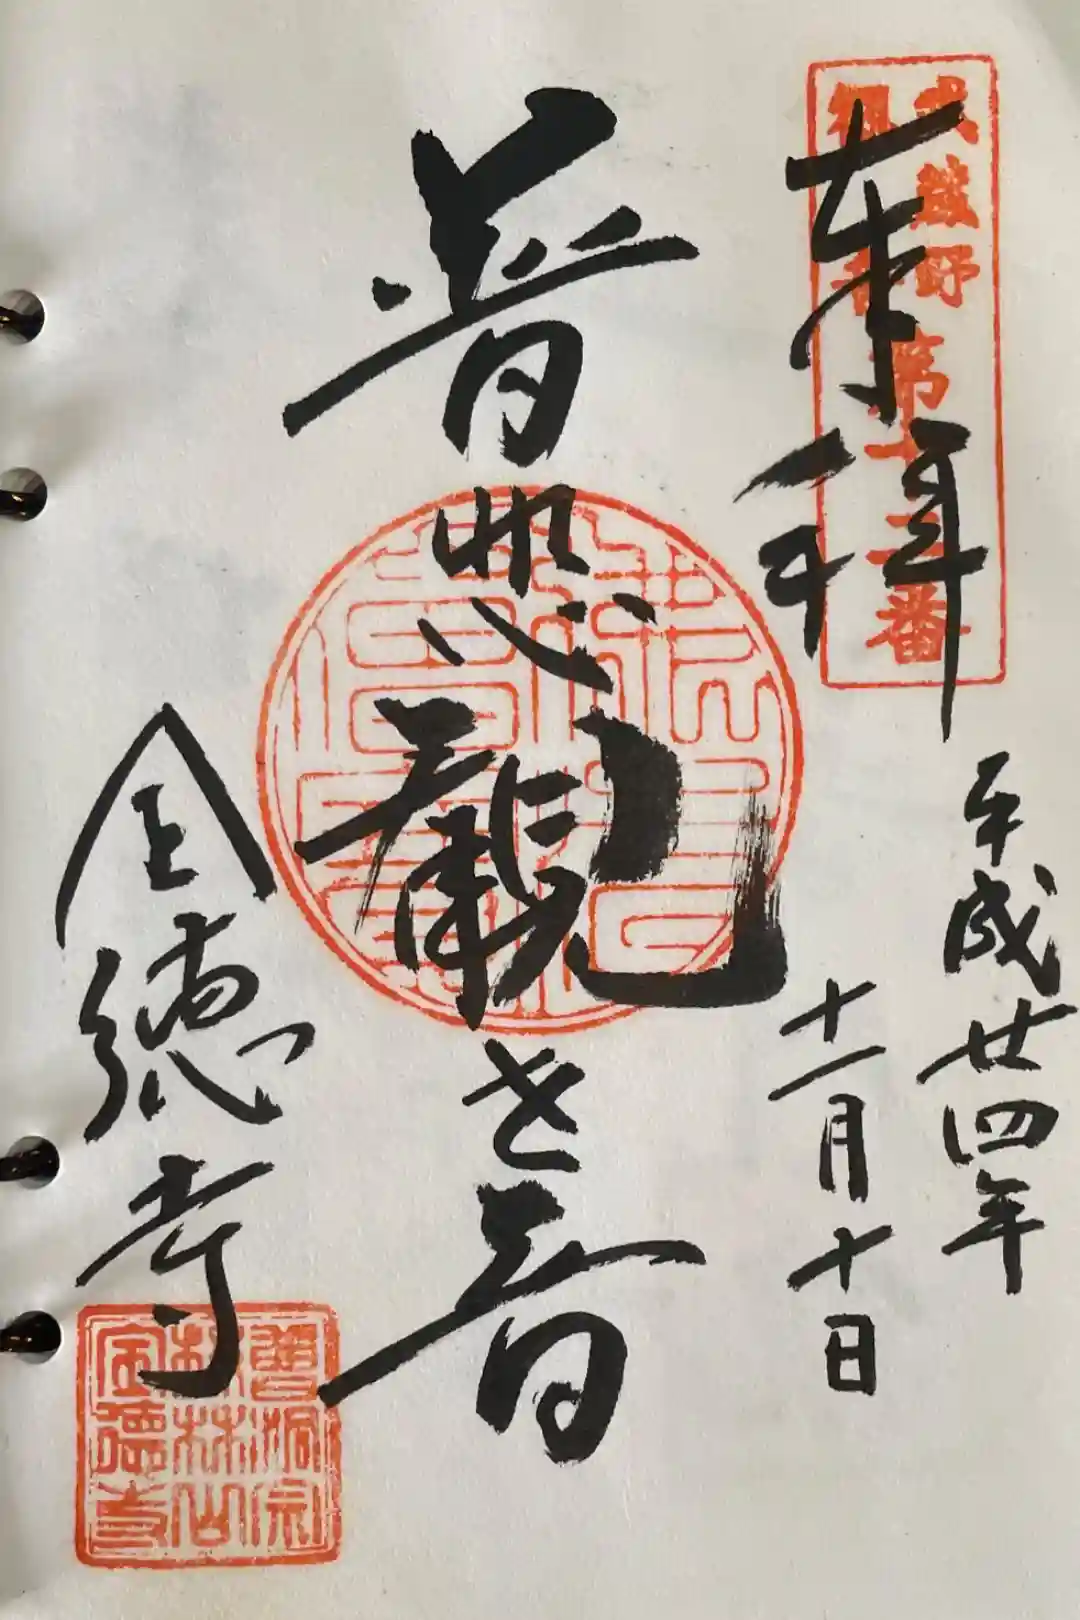 武蔵野
観音
第十二番
奉拝
平成廿四年
十一月十日
普照観世音
全徳寺
曹洞宗
松林山
全徳寺